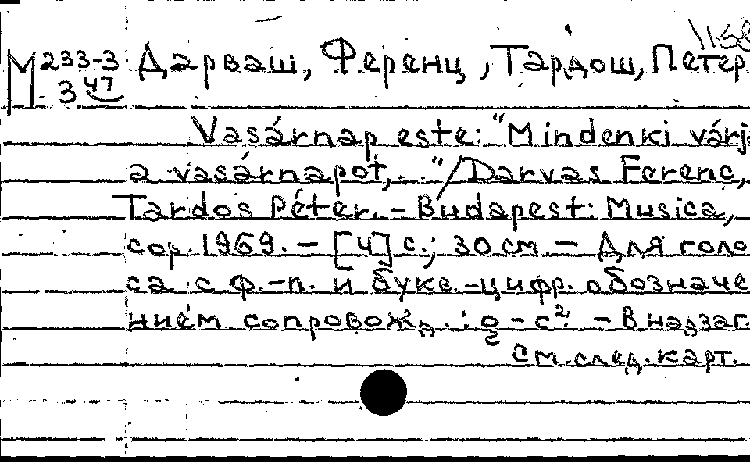 1158
М 233-3 Дарваш, Ференц, Тардош, Петер
3 47
Vasárnap este: "Mindenki várj
a vasárnapot,.." / Darvas Ferenc,
Tardos Péter. – Budapest: Musica,
cop. 1969. – [4] с.; 30 см – Для голо
са с ф.-п. и букв.-цифр. обозначе
нием сопровожд.: – c² – В надзаг.
См. след. карт.